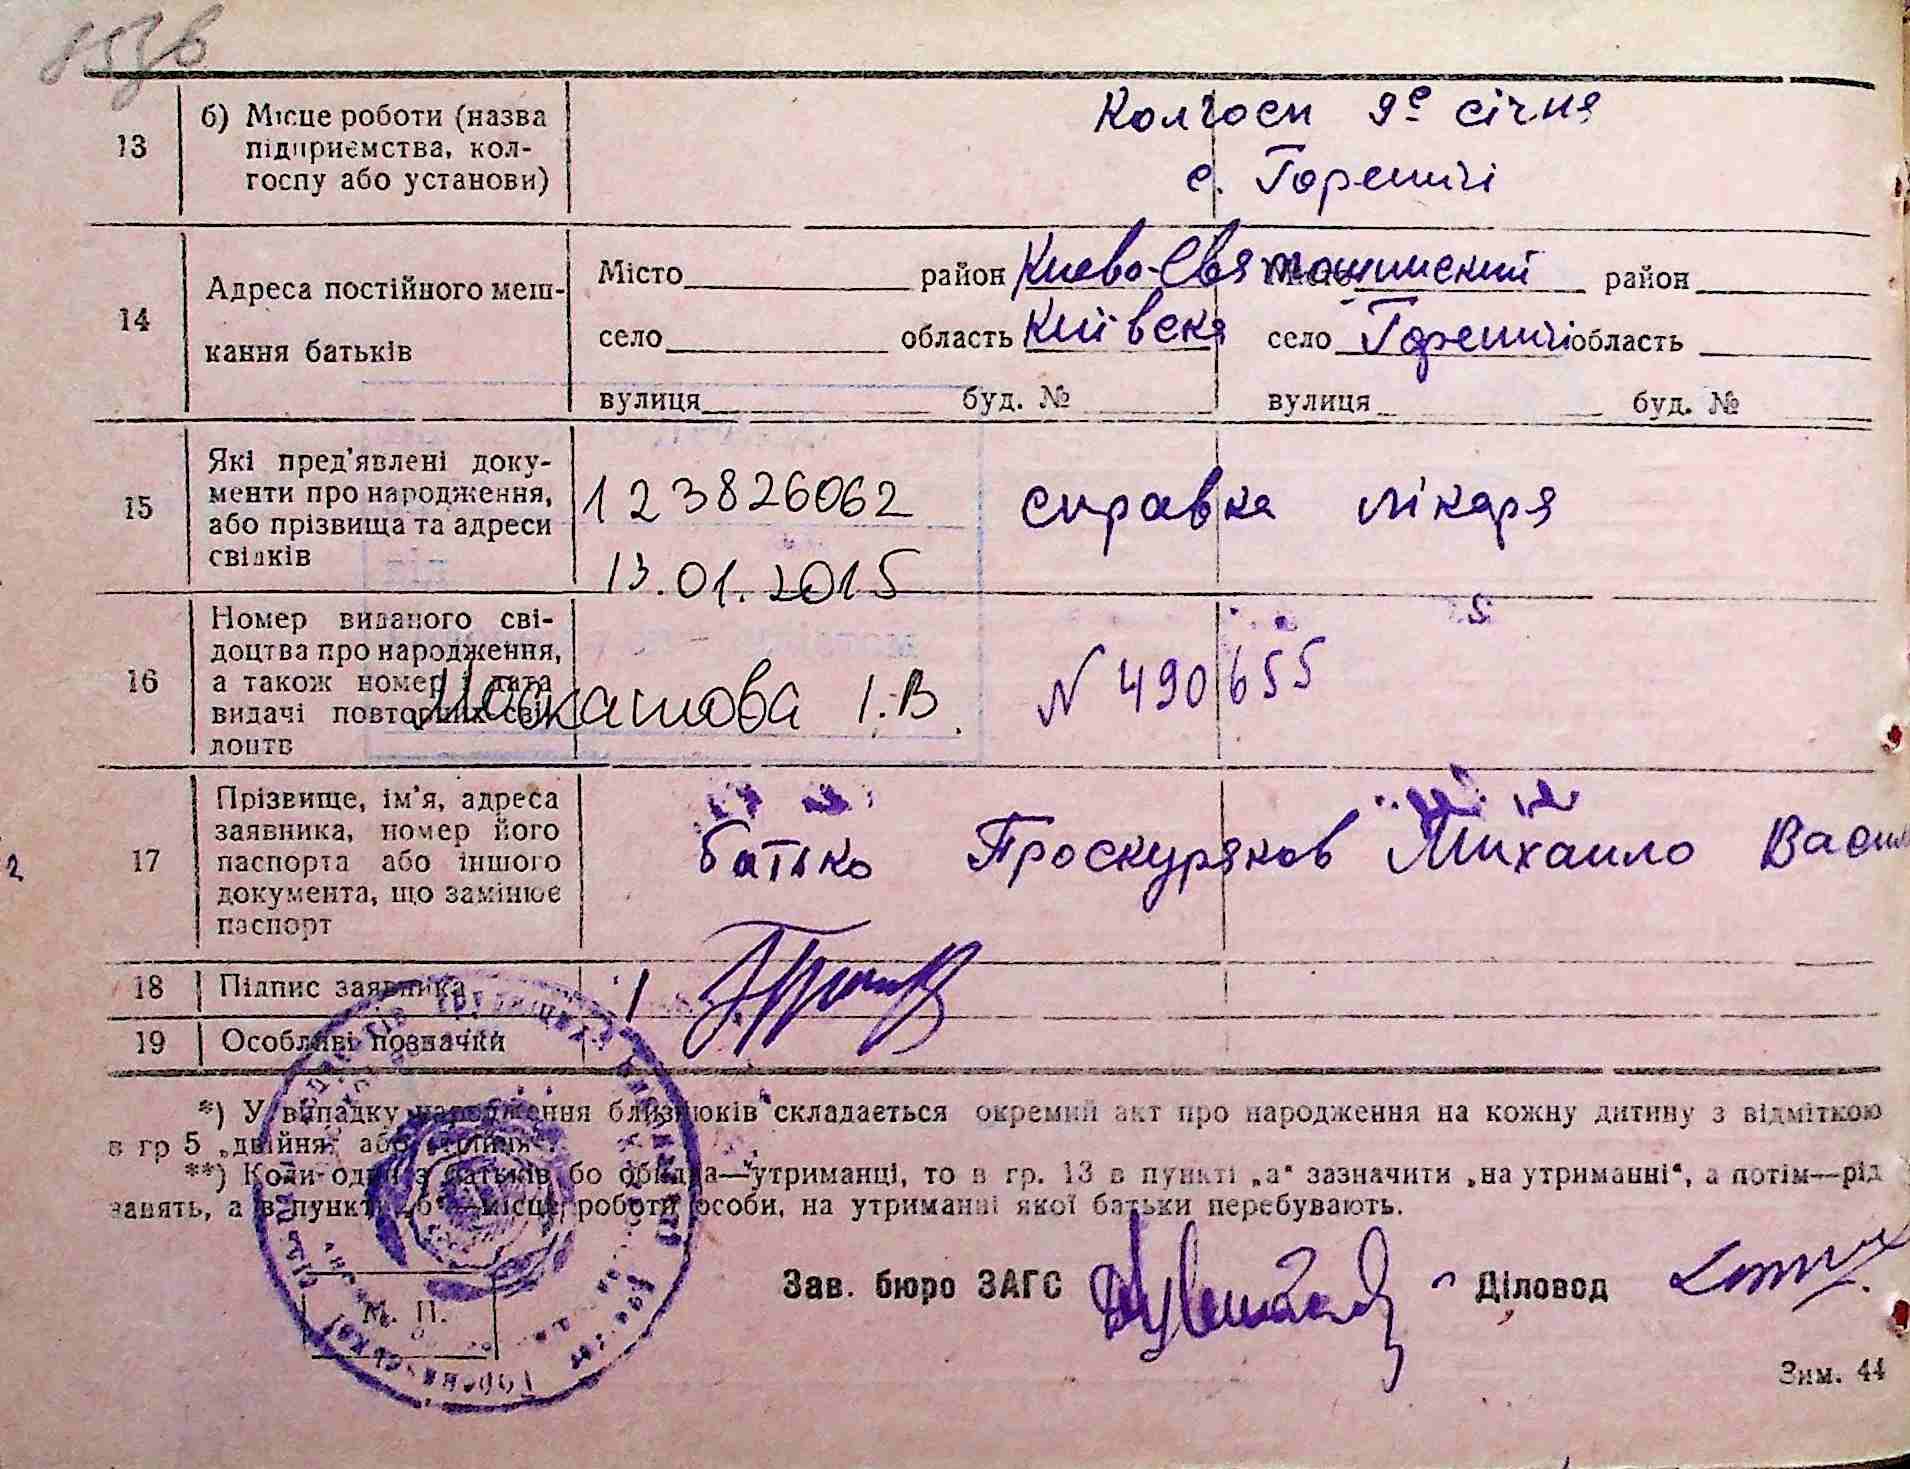 13
б) Місце роботи (назва
підприємства, кол-
госпу або установи)
Колгосп 9е січня
с. Гореничі
14
Адреса постійного меш-
кання батьків
Місто район Києво-Святошинский район
село область Київска село Гореничі область
вулиця буд. № вулиця буд. №
15
Які пред'явлені доку-
менти про народження,
або прізвища та адреси
свідків
123826062 справка лікаря
13.01.2015
16
Номер виданого сві-
доцтва про народження,
а також номер і дата
видачі повторних сві-
доцтв
І.В. N 490655
17
Прізвище, ім'я, адреса
заявника, номер його
паспорта або іншого
документа, що замінює
паспорт
батько Проскуряков Михаило Васил
18 Підпис заявника
19 Особливі позначки
*) У випадку народження близнюків складається окремий акт про народження на кожну дитину з відміткою
в гр 5 „двійня" або „трійня".
**) Коли один з батьків або обидва—утриманці, то в гр. 13 в пункті „а" зазначити „на утриманні", а потім—рід
занять, а в пункті „б"—місце роботи особи, на утриманні якої батьки перебувають.
Зав. бюро ЗАГС Діловод
М. П.
Зим. 44